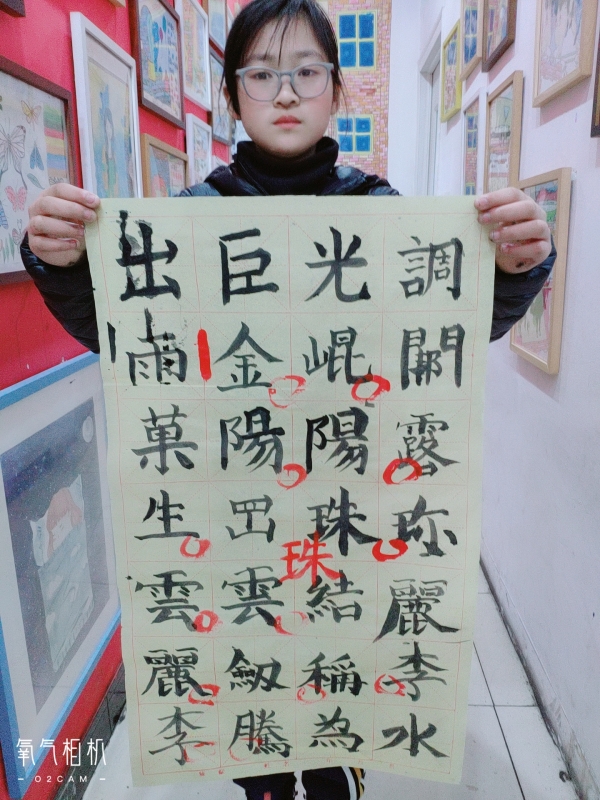 調闕露珎麗李水
光崐陽珠結稱為
珠
巨金陽雲劒騰
出雨菓生雲麗李
氧气相机
- O2CAM -